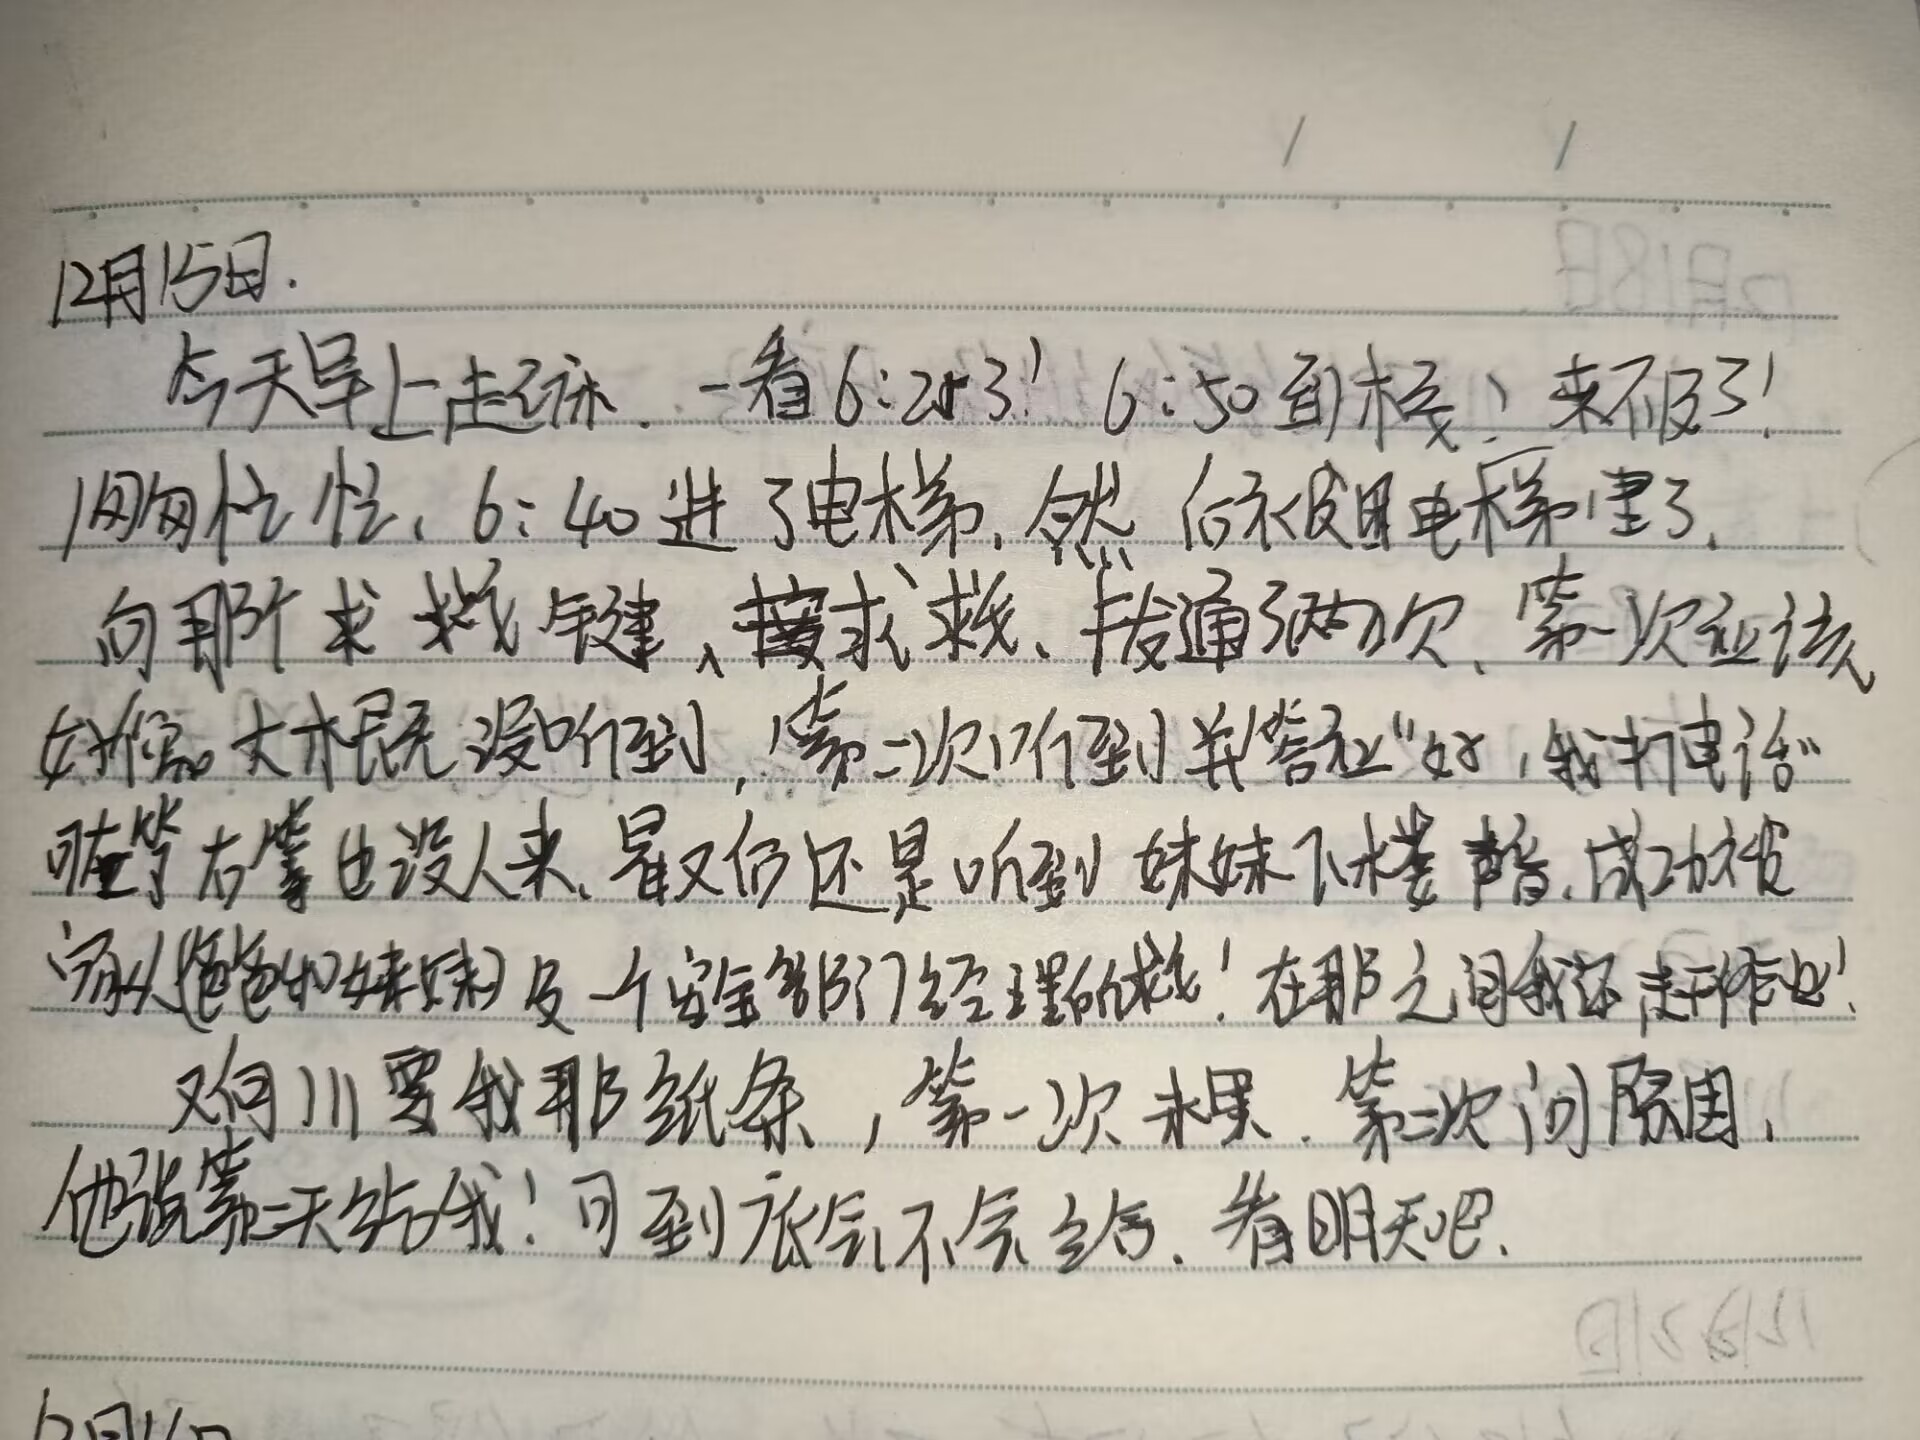 12月15日.
今天早上起床、一看6:25了!6:50到校!来不及了!
匆匆忙忙、6:40进了电梯、然后被困电梯里了、
向那个求救键、按求救、拨通了两次、第一次应该
好像 大根 没听到,第二次听到并答应“好,我打电话”
可左等右等也没人来、最后还是听到妹妹下楼声音、成功被
爸爸和妹妹及一个安全部门经理所救!在那之间我还赶作业!
又向川要我那纸条,第一次未果、第二次问原因、
他说第二天给我!可到底会不会给、看明天吧、